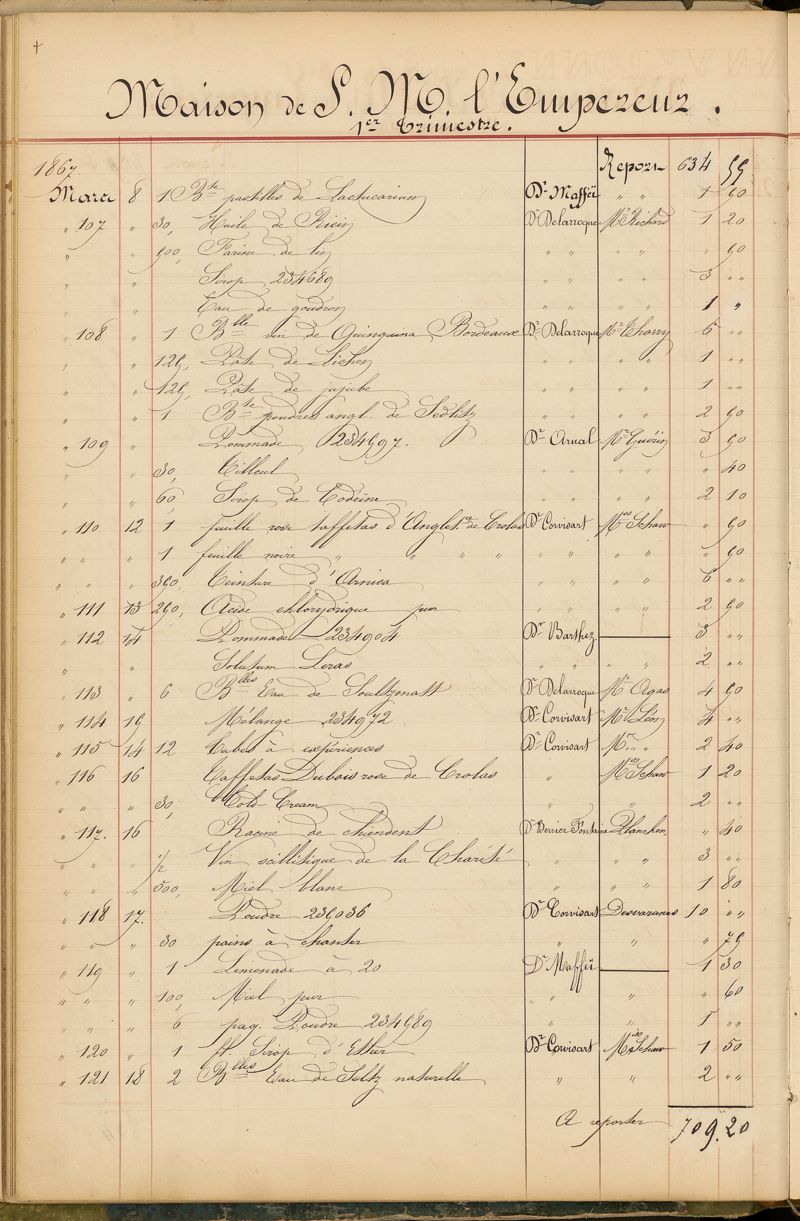 Maison de S. M. l'Empereur.
1er trimestre.
1867 Report 634 55
Mars 8 1 Bte pastilles de Lactucarium Dr Maffeï " " 1 50
" 107 " 30, Huile de Ricin Dr Delarroque Mr Richard 1 20
" " 500, Farine de lin " " " " " 50
" " Sirop 234689 " " " " 3 " "
" " Eau de goudron " " " " 1 "
" 108 " 1 Blle vin de Quinquina Bordeaux Dr Delarroque Mr Thorry 5 " "
" " 125, Pâte de Lichen " " " " 1 " "
" " 125, Pâte de jujube " " " " 1 " "
" " 1 Bte poudres angl. de Sedlitz " " " " 2 50
" 109 " Pommade 234597. Dr Arnal Mr Guérin 3 50
" " 30, Tilleul " " " " " 40
" " 60, Sirop de Codéine " " " " 2 10
" 110 12 1 feuille rose taffetas d'Angletre de Crolas Dr Corvisart Mme Schaw " 50
" " " 1 feuille noire " " " " " " " " " 50
" " " 350, Teinture d'Arnica " " " " 6 " "
" 111 13 250, Acide chlorydrique pur " " " " 2 50
" 112 14 Pommade 234904 Dr Barthez 3 " "
" " Solutum Leras " " " " 2 " "
" 113 " 6 Blles Eau de Soultzmatt Dr Delarroque Mr Agas 4 50
" 114 15 Mélange 234972 Dr Corvisart Mr Léon 4 " "
" 115 14 12 Tubes à expériences Dr Corvisart Mr " " 2 40
" 116 16 Taffetas Dubois rose de Crolas " Mme Schaw 1 20
" " " 30, Cold-Cream " " 2 " "
" 117. 16 Racine de chiendent Dr Vernier Fontaine Blanchen " 40
" " " 1/2 Vin scillitique de la Charité " " " 3 " "
" " " 500, Miel blanc " " " 1 80
" 118 17. Poudre 235036 Dr Corvisart Desvarannes 10 " "
" " " 30 pains à chanter " " " 75
" 119 " 1 Limonade à 20 Dr Maffeï 1 30
" " " 100, Miel pur " " " 60
" " " 6 paq. Poudre 234589 " " 1 " "
" 120 " 1 fl. Sirop d'Ether Dr Corvisart Mme Schaw 1 50
" 121 18 2 Blles Eau de Seltz naturelle " " 2 " "
A reporter 709.20